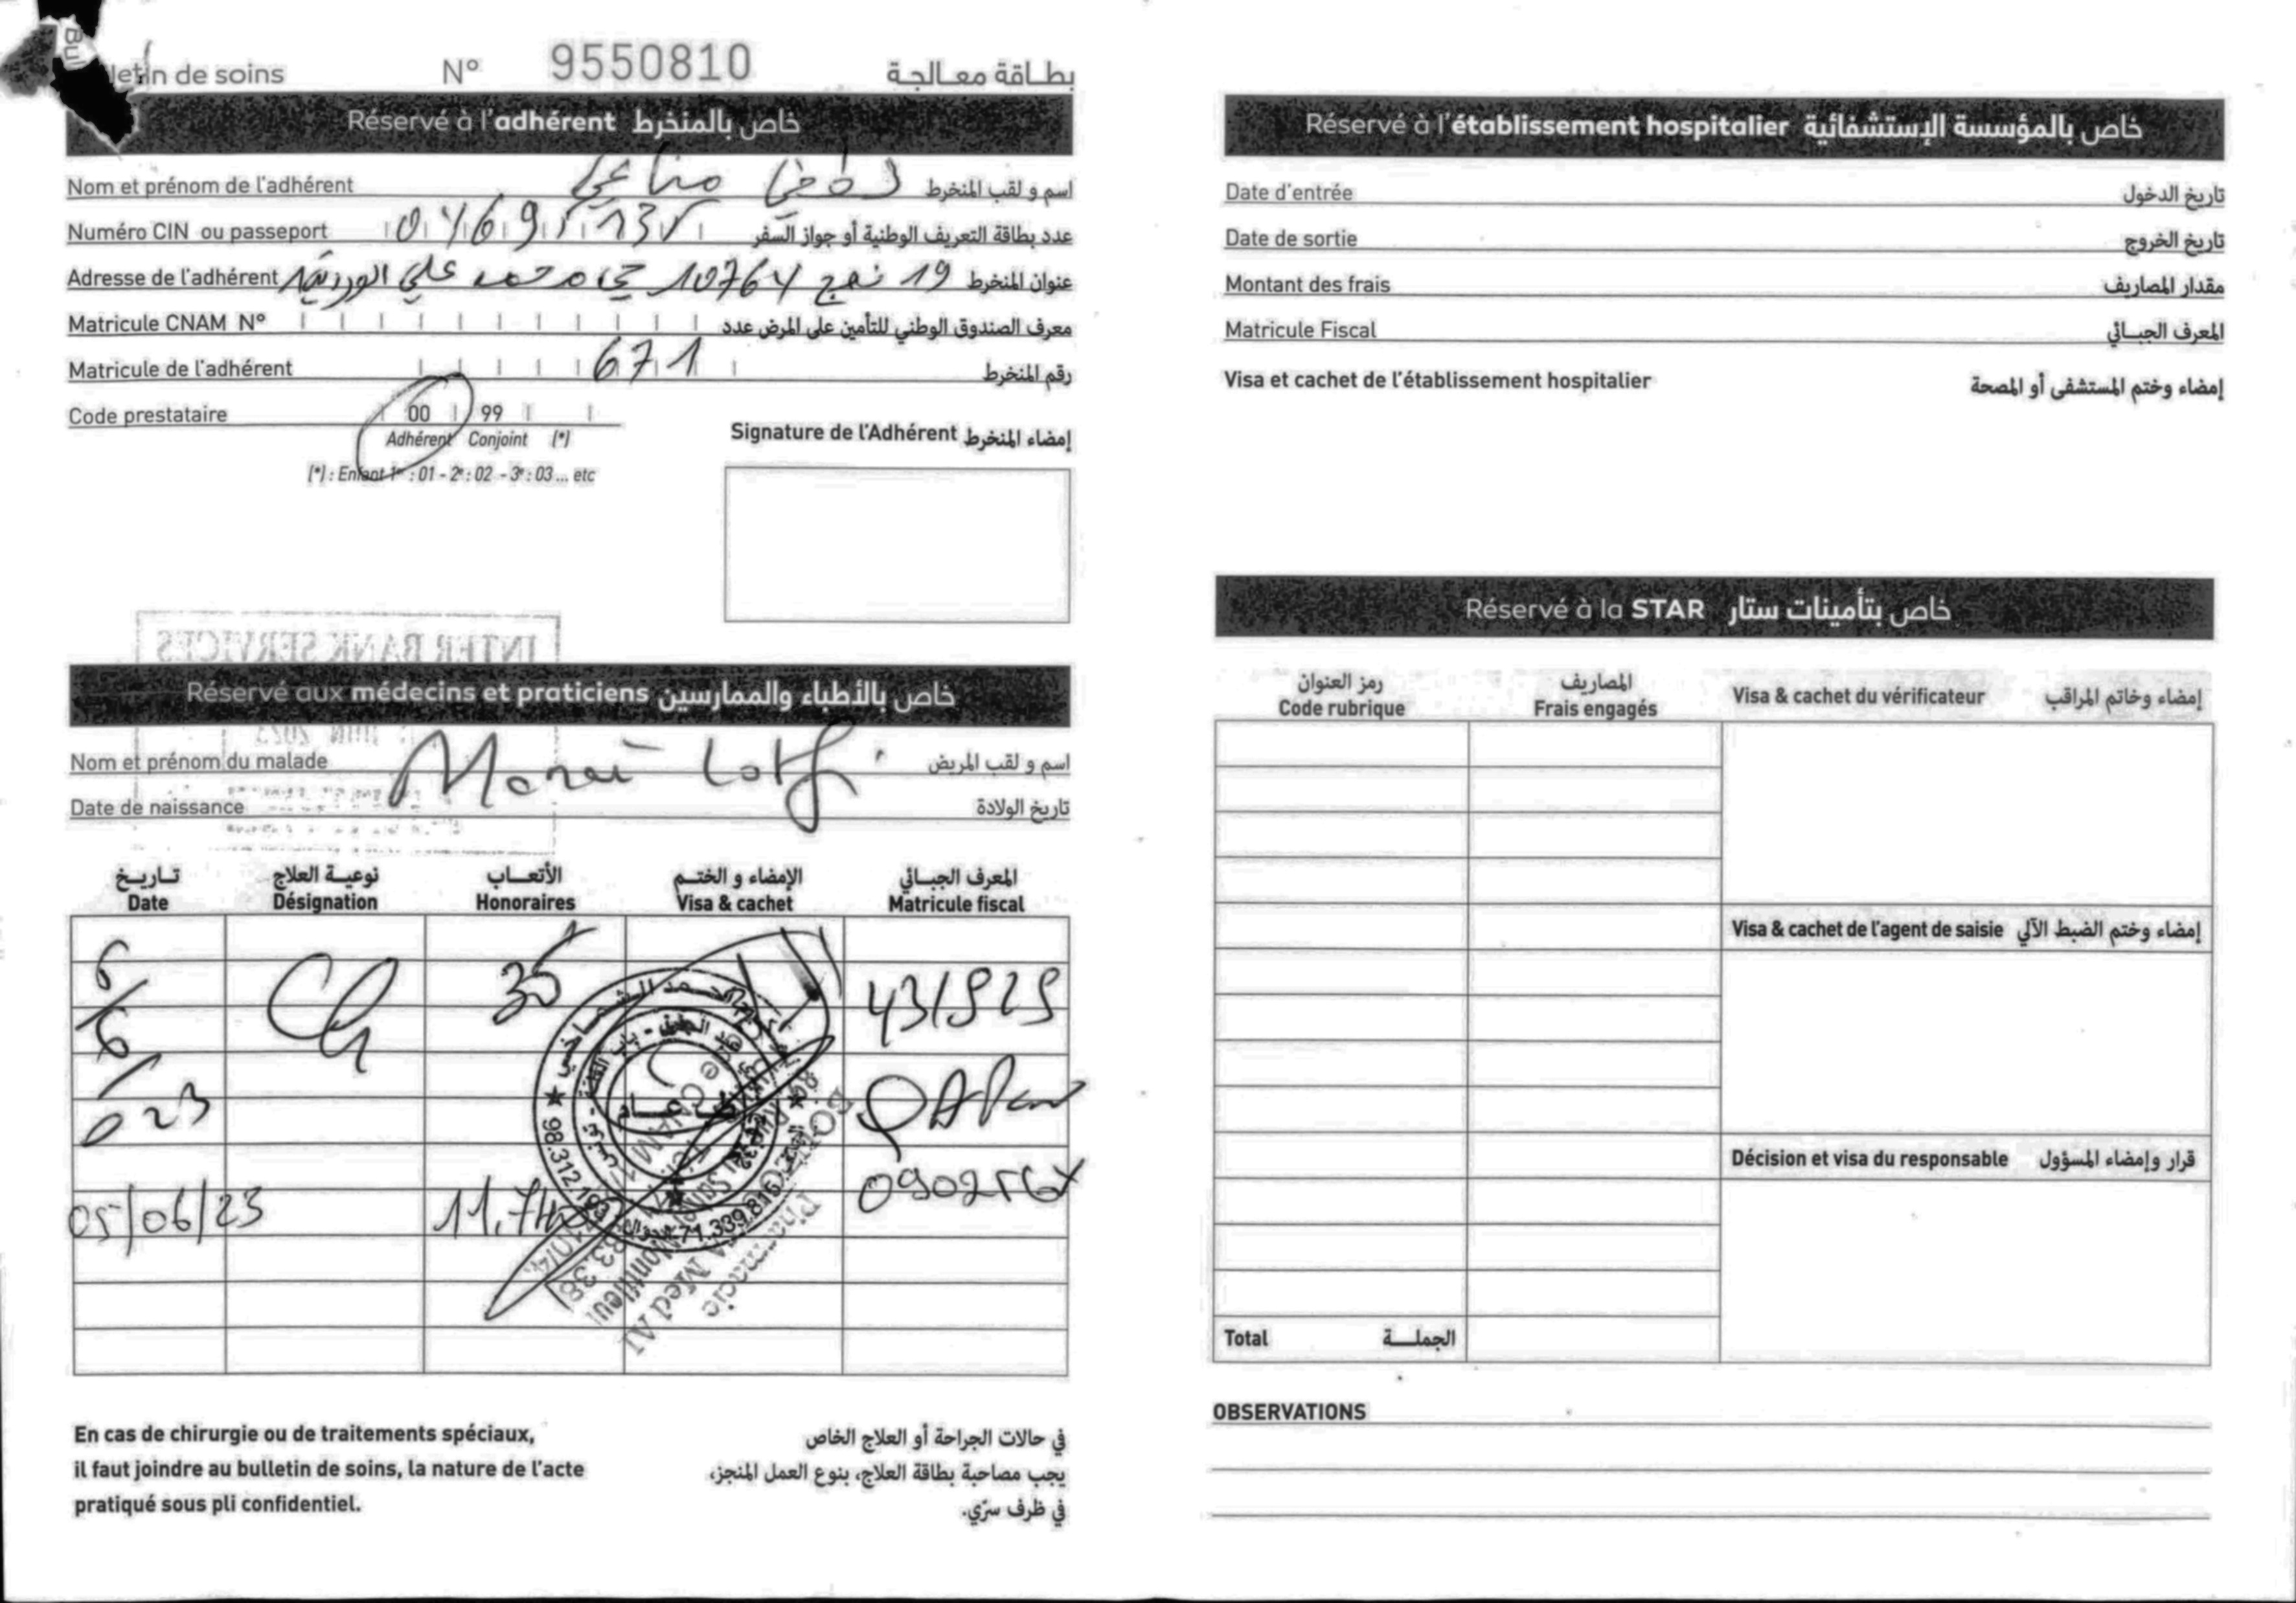 Bulletin de soins N° 9550810 بطاقة معالجة
Réservé à l'adhérent خاص بالمنخرط
Nom et prénom de l'adhérent لطفي مناعي اسم و لقب المنخرط
Numéro CIN ou passeport عدد بطاقة التعريف الوطنية أو جواز السفر
Adresse de l'adhérent 19 نهج 10764 حي محمد علي الوردية عنوان المنخرط
Matricule CNAM N° معرف الصندوق الوطني للتأمين على المرض عدد
Matricule de l'adhérent 671 رقم المنخرط
Code prestataire 00 99
Adhérent Conjoint (*)
(*) : Enfant 1er : 01 - 2e : 02 - 3e : 03 ... etc
Signature de l'Adhérent إمضاء المنخرط
INTER BANK SERVICES
Réservé aux médecins et praticiens خاص بالأطباء والممارسين
JUIN 2023
Nom et prénom du malade Lotfi اسم و لقب المريض
Date de naissance تاريخ الولادة
تاريخ نوعية العلاج الأتعاب الإمضاء و الختم المعرف الجبائي
Date Désignation Honoraires Visa & cachet Matricule fiscal
6/6/023 35
05/06/23
98.312.193
71.339.816
Pharmacie
En cas de chirurgie ou de traitements spéciaux,
il faut joindre au bulletin de soins, la nature de l'acte
pratiqué sous pli confidentiel.
في حالات الجراحة أو العلاج الخاص
يجب مصاحبة بطاقة العلاج، بنوع العمل المنجز،
في ظرف سرّي.
Réservé à l'établissement hospitalier خاص بالمؤسسة الإستشفائية
Date d'entrée تاريخ الدخول
Date de sortie تاريخ الخروج
Montant des frais مقدار المصاريف
Matricule Fiscal المعرف الجبائي
Visa et cachet de l'établissement hospitalier إمضاء وختم المستشفى أو المصحة
Réservé à la STAR خاص بتأمينات ستار
رمز العنوان المصاريف
Code rubrique Frais engagés Visa & cachet du vérificateur إمضاء وخاتم المراقب
Visa & cachet de l'agent de saisie إمضاء وختم الضبط الآلي
Décision et visa du responsable قرار وإمضاء المسؤول
Total الجملة
OBSERVATIONS